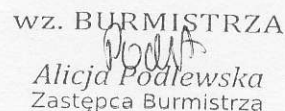 wz. BURMISTRZA
Alicja Podlewska
Zastępca Burmistrza